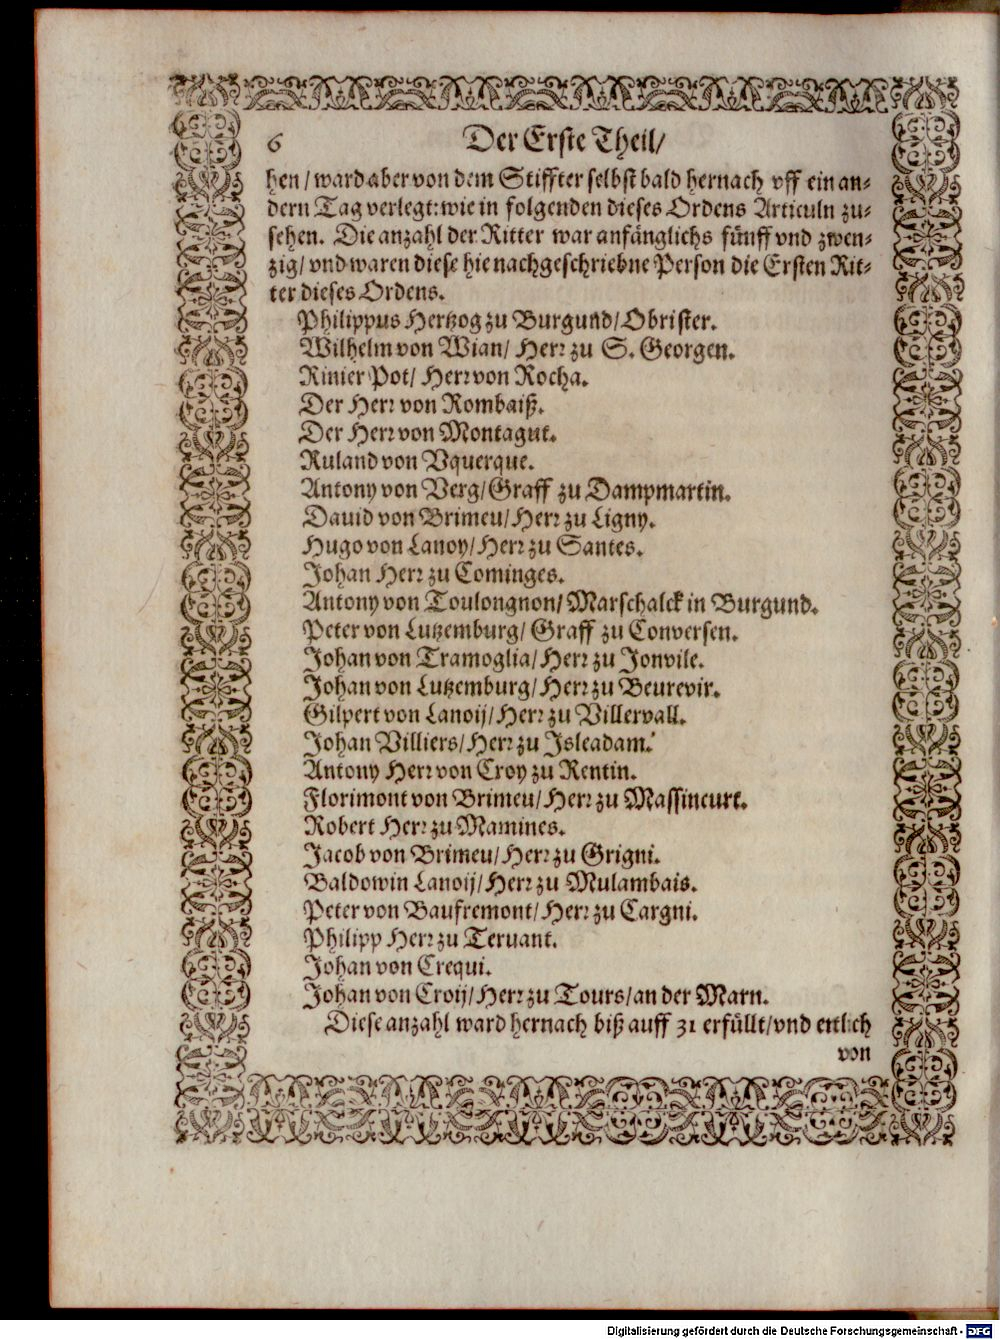 6 Der Erste Theil/
hen / ward aber von dem Stiffter selbst bald hernach vff ein an-
dern Tag verlegt: wie in folgenden dieses Ordens Articuln zu-
sehen. Die anzahl der Ritter war anfänglichs fünff vnd zwen-
zig/ vnd waren diese hie nachgeschriebne Person die Ersten Rit-
ter dieses Ordens.
Philippus Hertzog zu Burgund/ Obrister.
Wilhelm von Wian/ Herr zu S. Georgen.
Rinier Pot/ Herr von Rocha.
Der Herr von Rombaiß.
Der Herr von Montagut.
Ruland von Vquerque.
Antony von Verg/ Graff zu Dampmartin.
Dauid von Brimeu/ Herr zu Ligny.
Hugo von Lanoy/ Herr zu Santes.
Johan Herr zu Cominges.
Antony von Toulongnon/ Marschalck in Burgund.
Peter von Lutzemburg/ Graff zu Conversen.
Johan von Tramoglia/ Herr zu Jonvile.
Johan von Lutzemburg/ Herr zu Beurevir.
Gilpert von Lanoij/ Herr zu Villervall.
Johan Villiers/ Herr zu Isleadam.
Antony Herr von Croy zu Rentin.
Florimont von Brimeu/ Herr zu Massincurt.
Robert Herr zu Mamines.
Jacob von Brimeu/ Herr zu Grigni.
Baldowin Lanoij/ Herr zu Mulambais.
Peter von Baufremont/ Herr zu Cargni.
Philipp Herr zu Teruant.
Johan von Crequi.
Johan von Croij/ Herr zu Tours/ an der Marn.
Diese anzahl ward hernach biß auff 31 erfüllt/ vnd ettlich
von
Digitalisierung gefördert durch die Deutsche Forschungsgemeinschaft - DFG